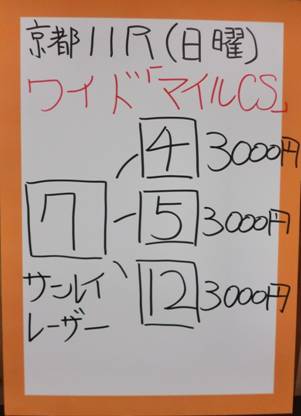 京都11R(日曜)
ワイド「マイルCS」
4 3000円
7 5 3000円
12 3000円
サンレイ
レーザー